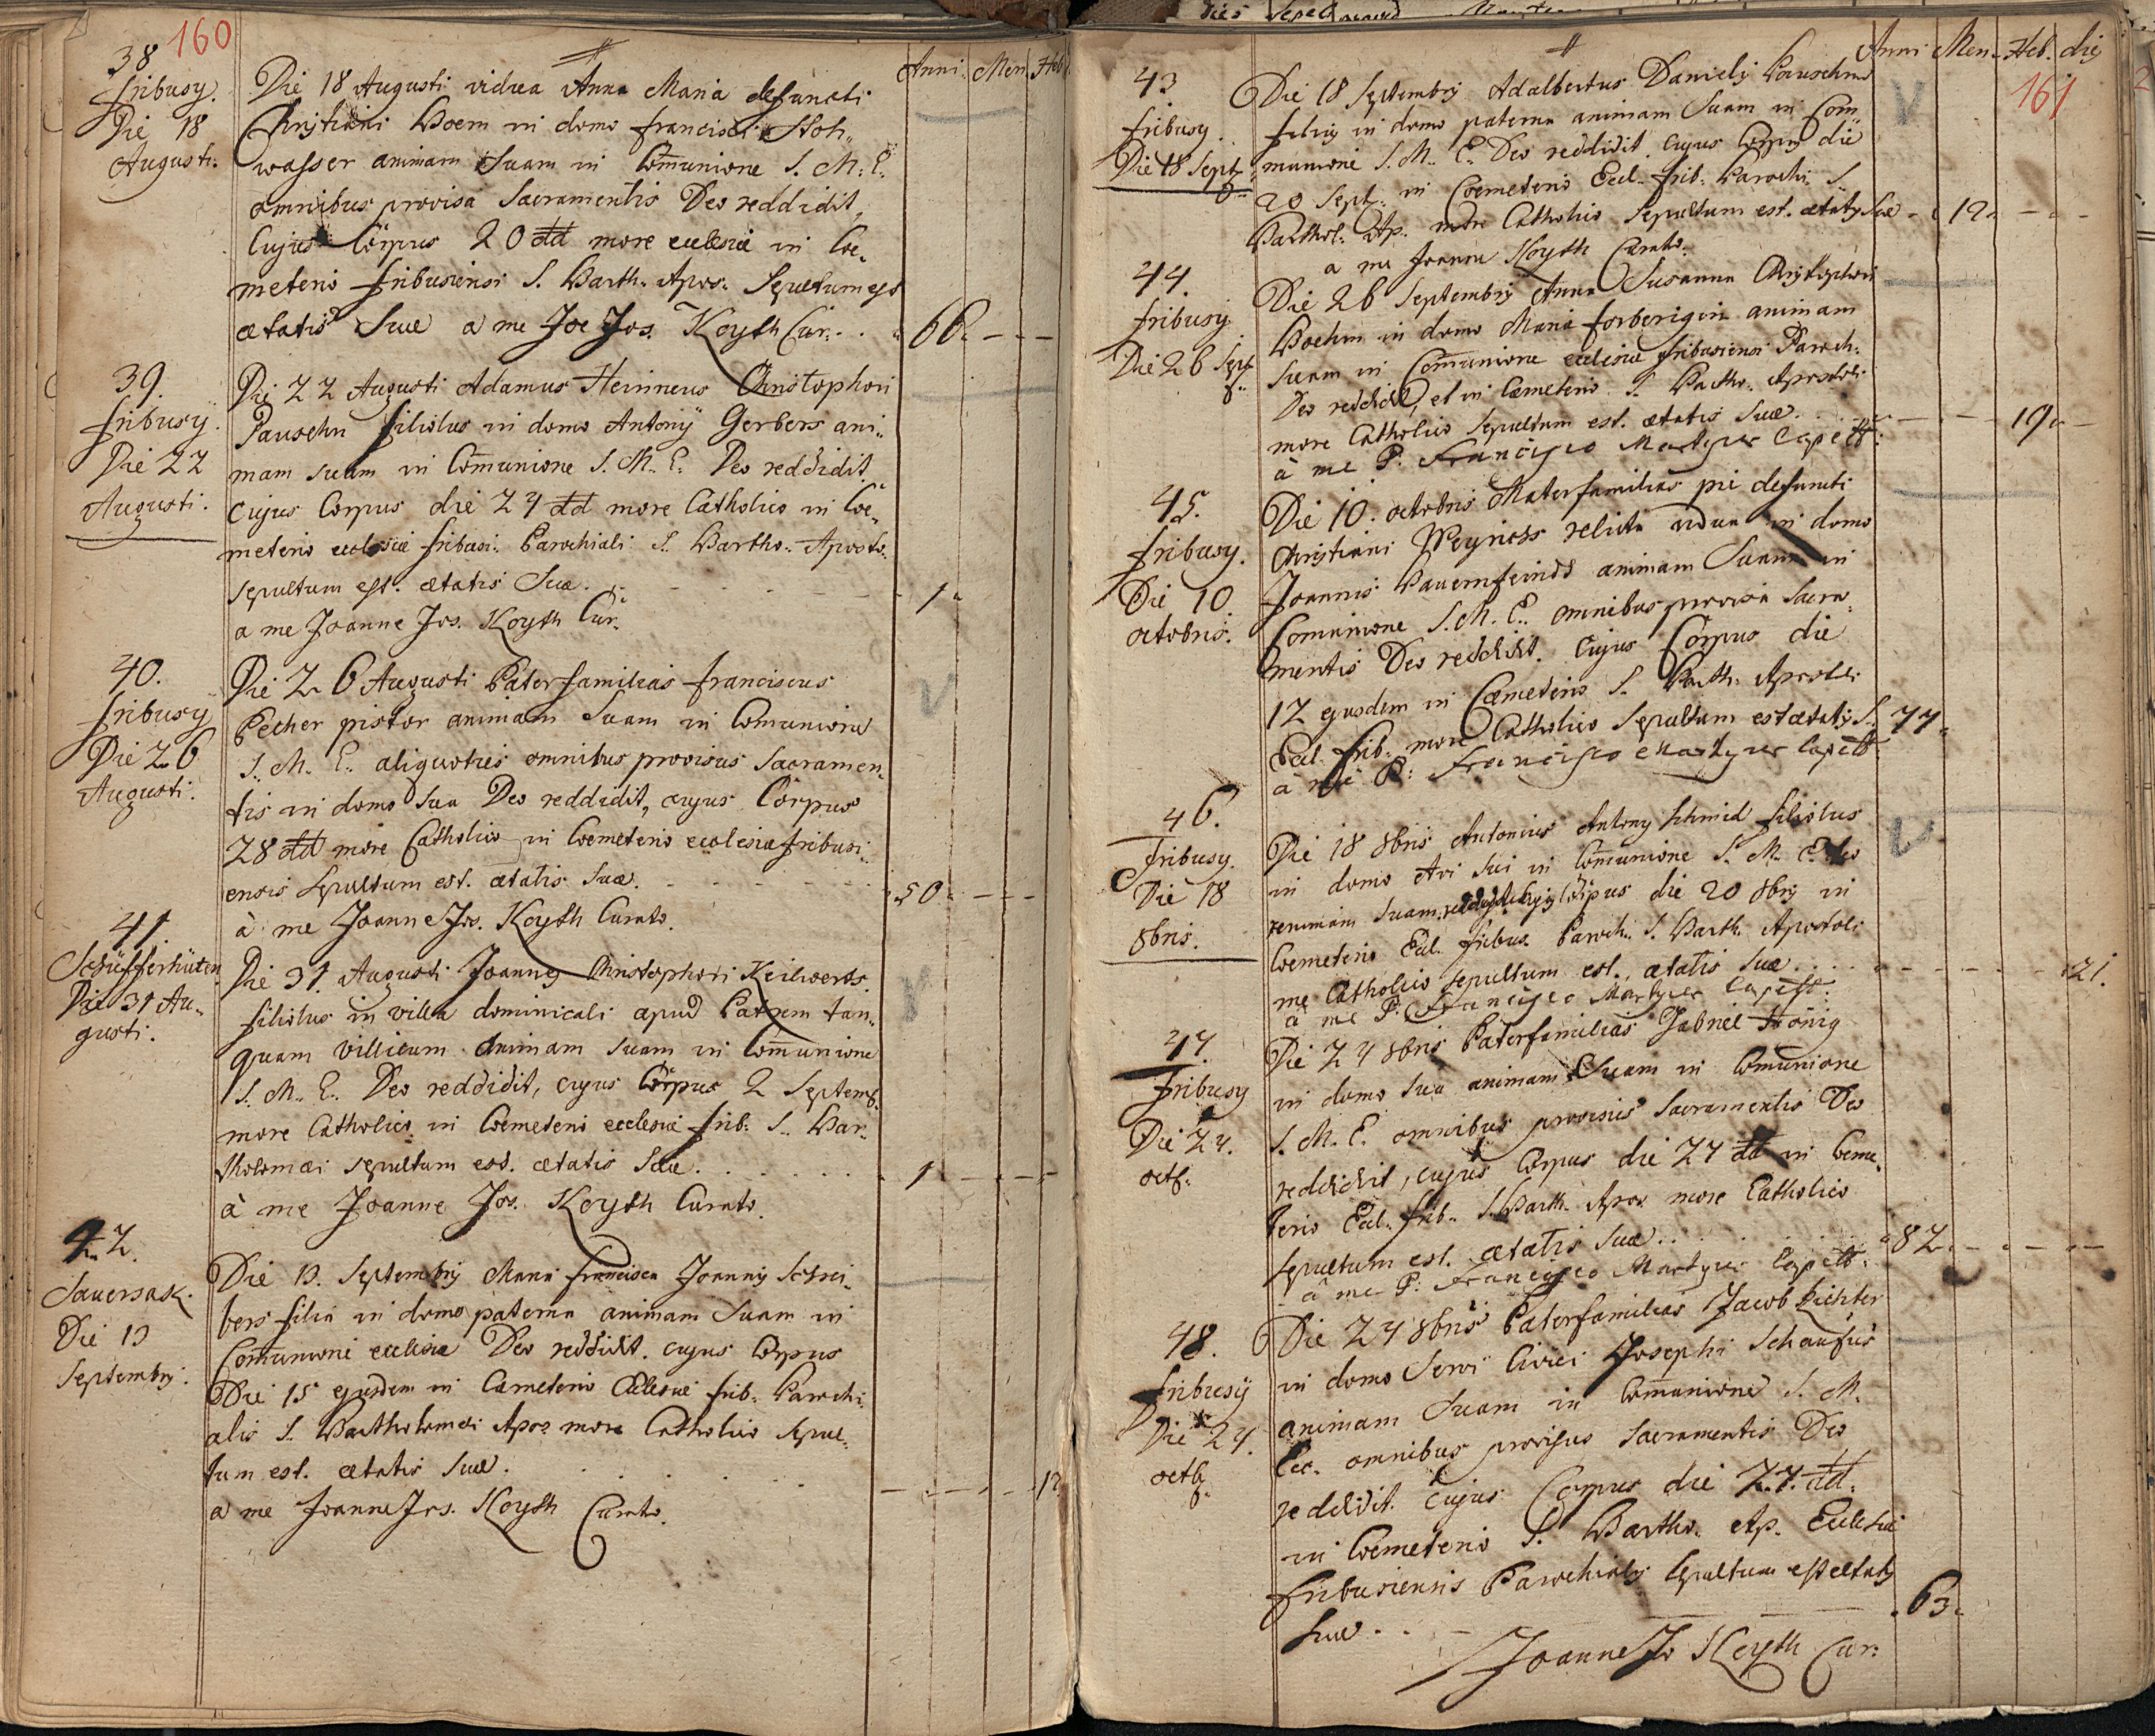 160
Anni. Men. Heb.
38
fribusÿ.
Die 18
Augusti.
Die 18 Augusti vidua Anna Maria defuncti
Christiani Boem in domo francisci Stoh,,
wasser animam Suam in Com̄unione S. M. E.
omnibus provisa Sacramentis Deo reddidit,
Cujus Corpus 20 dd more ecclesiæ in Coe,,
meterio fribusiensi S. Barth. Apos. Sepultum est
ætatis Suæ a me Joe Jos. Koyth Cur. . . 66. - - -
39.
fribusÿ.
Die 22
Augusti.
Die 22 Augusti Adamus Christophori
Pauschn filiolus in domo Antonÿ Gerbers ani,,
mam suam in Com̄unione S. M. E. Deo reddidit.
Cujus Corpus die 24 dd more Catholico in Coe,,
meterio ecclesiæ fribusi. Parochiali S. Bartho. Aposto.
sepultum est. ætatis Suæ. - - - 1.
a me Joanne Jos. Koyth Cur.
40.
fribusÿ
Die 26
Augusti.
Die 26 Augusti Paterfamilias franciscus
Pecher pistor animam Suam in Comunione
S. M. E. aliquoties omnibus provisus Sacramen,,
tis in domo Sua Deo reddidit, cujus Corpus
28 dd more Catholico in Coemeterio ecclesiæ fribusi,,
ensis Sepultum est. ætatis Suæ. - - - 50. - - -
à me Joanne Jos. Koyth Curato.
41
Schüfferhüten
Die 31 Au,,
gusti.
Die 31. Augusti Joannes Christophori Keilwerts
filiolus in villa dominicali apud Patrem tan,,
quam villicum animam suam in Com̄unione
S. M. E. Deo reddidit, cujus Corpus 2 Septemb.
more Catholico in Coemeterio ecclesiæ frib. S. Bar,,
tholomæi sepultum est. ætatis Suæ. . . . 1. - - -
à me Joanne Jos. Koyth Curato.
42.
Sauersak.
Die 13
Septembris.
Die 13. Septembris Maria francisca Joannis Schrei,,
bers filia in domo paterna animam Suam in
Com̄unione ecclesiæ Deo reddidit. cujus Corpus
Die 15 ejusdem in Cæmeterio Ecclesiæ frib. Parochi,,
alis S. Bartholomæi Apos. more Catholico Sepul,,
tum est. ætatis Suæ. . . . . - - - 12.
a me Joanne Jos. Koyth Curato.
Anni Men. Heb. dies
161
43
fribusy.
Die 18 Sept.
Die 18 Septembris Adalbertus Danielis Pauschns
filius in domo paterna animam Suam in Com,,
munione S. M. E. Deo reddidit. Cujus Corpus die
20 Sept. in Coemeterio Eccl. frib. Parochi. S.
Barthol. Ap. more Catholico Sepultum est. ætatis Suæ - 12. - - -
a me Joanne Koyth Curato.
44
fribusy
Die 26 Sept.
Die 26 Septembris Anna Susanna Christophori
Boehm in domo Maria forberigin animam
Suam in Com̄unione ecclesiæ fribusiensi Paroch.
Deo reddidit, et in Cæmeterio S. Bartho. Apostoli
more Catholico Sepultum est. ætatis Suæ. . . - - 19. -
à me P. Francisco Martyre Capell.
45.
fribusy.
Die 10.
octobris.
Die 10. octobris Materfamilias pie defuncti
Christiani relicta vidua in domo
Joannis Bauernfeinds animam Suam in
Comunione S. M. E. omnibus provisa Sacra,,
mentis Deo reddidit. Cujus Corpus die
12 ejusdem in Cæmeterio S. Barth. Apostoli
Eccl. frib. more Catholico Sepultum est ætatis S. 77.
à me P. Francisco Martyre Capell.
46.
fribusy.
Die 18
8bris.
Die 18 8bris Antonius Antony Schmid filiolus
in domo Avi Sui in Com̄unione S. M. E. Deo
animam Suam reddidit. Cujus Corpus die 20 8bris in
Coemeterio Eccl. fribus. Paroch. S. Barth. Apostoli
me Catholico sepultum est. ætatis Suæ . . . - - - - 21.
à me P. Francisco Martyre Capell.
47.
fribusy
Die 24.
octb.
Die 24 8bris Paterfamilias Gabriel Hönig
in domo Sua animam Suam in Comunione
S. M. E. omnibus provisus Sacramentis Deo
reddidit, cujus Corpus die 27 dd in Coeme,,
terio Eccl. frib. S. Barth. Apos. more Catholico
Sepultum est. ætatis Suæ. . . . 82. - - -
à me P. Francisco Martyre Capell.
48.
fribusÿ
Die 24.
octb.
Die 24 8bris Paterfamilias Jacob Richter
in domo Servi Civici Josephi Schaufus
animam Suam in Com̄unione S. M.
Ecc. omnibus provisus Sacramentis Deo
reddidit. Cujus Corpus die 27. dd.
in Coemeterio S. Bartho. Ap. Ecclesiæ
fribusiensis Parochialis Sepultum est ætatis
Suæ. . - 63.
Joanne Jo Koyth Cur.